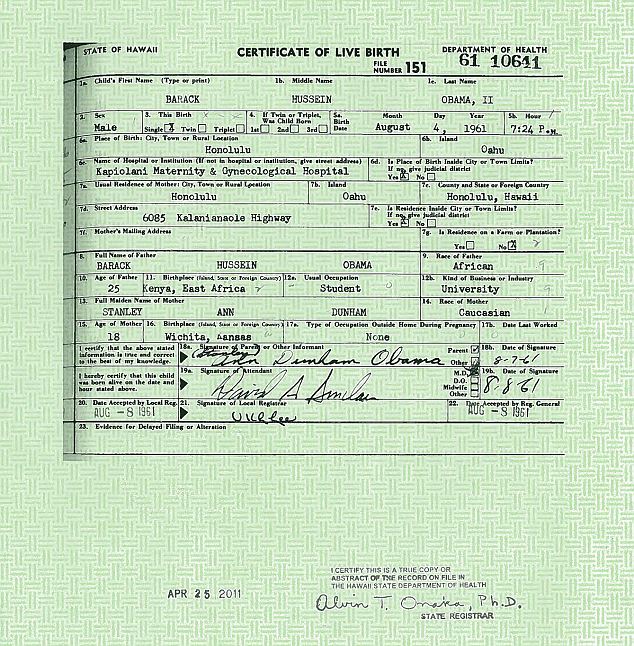 STATE OF HAWAII CERTIFICATE OF LIVE BIRTH DEPARTMENT OF HEALTH
FILE NUMBER 151 61 10641
1a. Child's First Name (Type or print) 1b. Middle Name 1c. Last Name
BARACK HUSSEIN OBAMA, II
2. Sex 3. This Birth 4. If Twin or Triplet, Was Child Born 5a. Birth Date Month Day Year 5b. Hour
Male Single X Twin Triplet 1st 2nd 3rd August 4, 1961 7:24 P.M.
6a. Place of Birth: City, Town or Rural Location 6b. Island
Honolulu Oahu
6c. Name of Hospital or Institution (If not in hospital or institution, give street address) 6d. Is Place of Birth Inside City or Town Limits? If no, give judicial district
Kapiolani Maternity & Gynecological Hospital Yes X No
7a. Usual Residence of Mother: City, Town or Rural Location 7b. Island 7c. County and State or Foreign Country
Honolulu Oahu Honolulu, Hawaii
7d. Street Address 7e. Is Residence Inside City or Town Limits? If no, give judicial district
6085 Kalanianaole Highway Yes X No
7f. Mother's Mailing Address 7g. Is Residence on a Farm or Plantation?
Yes No X
8. Full Name of Father 9. Race of Father
BARACK HUSSEIN OBAMA African 9
10. Age of Father 11. Birthplace (Island, State or Foreign Country) 12a. Usual Occupation 12b. Kind of Business or Industry
25 Kenya, East Africa Student 0 University 9
13. Full Maiden Name of Mother 14. Race of Mother
STANLEY ANN DUNHAM Caucasian
15. Age of Mother 16. Birthplace (Island, State or Foreign Country) 17a. Type of Occupation Outside Home During Pregnancy 17b. Date Last Worked
18 Wichita, Kansas None
I certify that the above stated information is true and correct to the best of my knowledge. 18a. Signature of Parent or Other Informant Parent Other 18b. Date of Signature
(Stanley) Ann Dunham Obama 8-7-61
I hereby certify that this child was born alive on the date and hour stated above. 19a. Signature of Attendant M.D. D.O. Midwife Other 19b. Date of Signature
David A Sinclair 8-8-61
20. Date Accepted by Local Reg. 21. Signature of Local Registrar 22. Date Accepted by Reg. General
AUG -8 1961 UKLee AUG -8 1961
23. Evidence for Delayed Filing or Alteration
APR 25 2011
I CERTIFY THIS IS A TRUE COPY OR
ABSTRACT OF THE RECORD ON FILE IN
THE HAWAII STATE DEPARTMENT OF HEALTH
Alvin T. Onaka, Ph.D.
STATE REGISTRAR